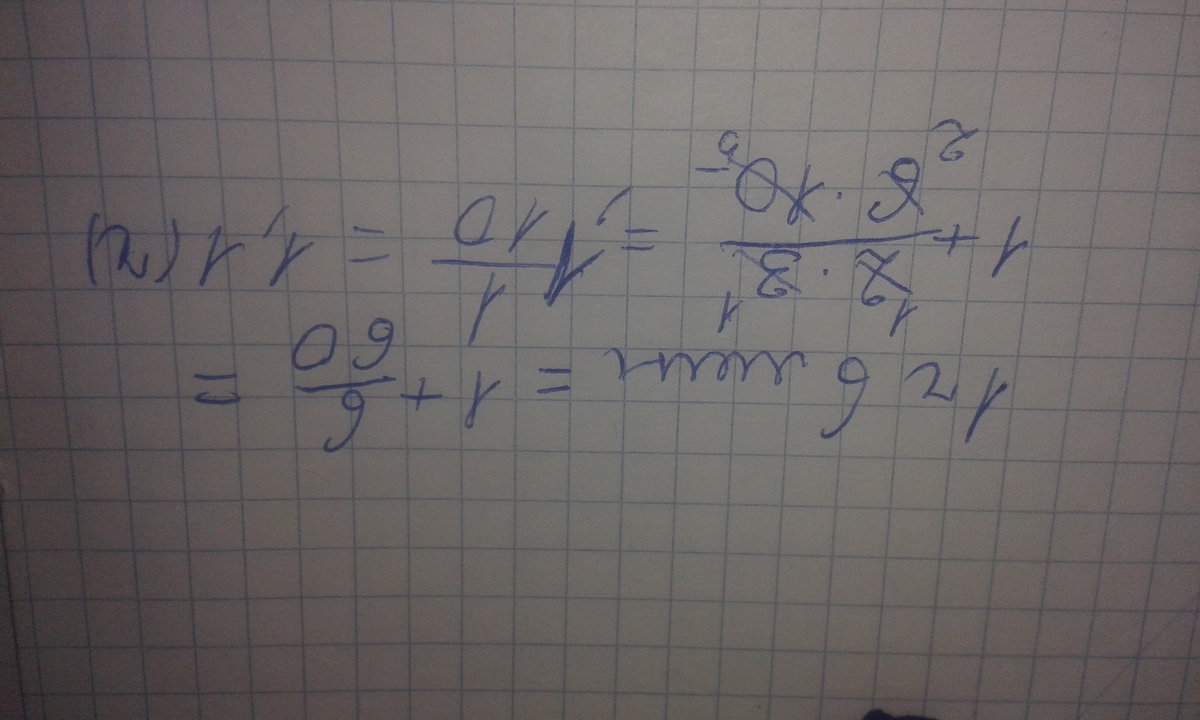 1 ч 6 мин = 1 + 6/60 =
1 + (2 · 3)/(6 · 10) = 1 1/10 = 1,1 (ч)